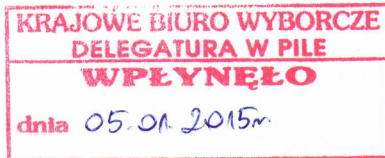 KRAJOWE BIURO WYBORCZE
DELEGATURA W PILE
WPŁYNĘŁO
dnia 05.01.2015r.